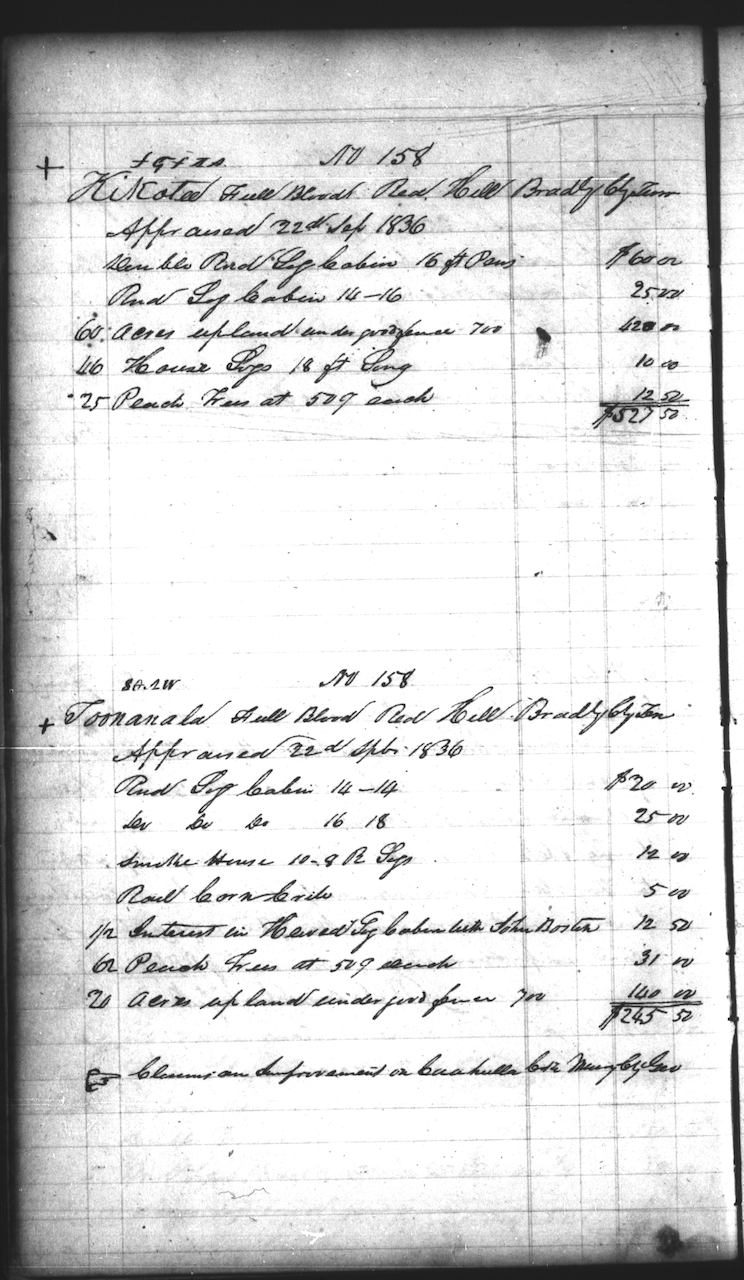 No 158
Kikotee Full Blood Red Hill Bradly Cty Tenn
Appraised 22d Sep 1836
Double Rnd Log Cabin 16 ft Pens $60 00
Rnd Log Cabin 14-16 25 00
60 Acres upland under good fence 700 420 00
46 House Logs 18 ft Long 10 00
25 Peach Trees at 50¢ each 12 50
$527 50
No 158
Toonanala Full Blood Red Hill Bradly Cty Ten
Appraised 22d Spbr 1836
Rnd Log Cabin 14-14 $20 00
Do Do Do 16 18 25 00
Smoke House 10-8 R Logs 12 00
Rail Corn Crib 5 00
1/2 Interest in Hewed Log Cabin with John Boston 12 50
62 Peach Trees at 50¢ each 31 00
20 Acres upland under good fence 700 140 00
$245 50
☞ Claims an Improvement on Coahulla Crk Murry Cty Geo